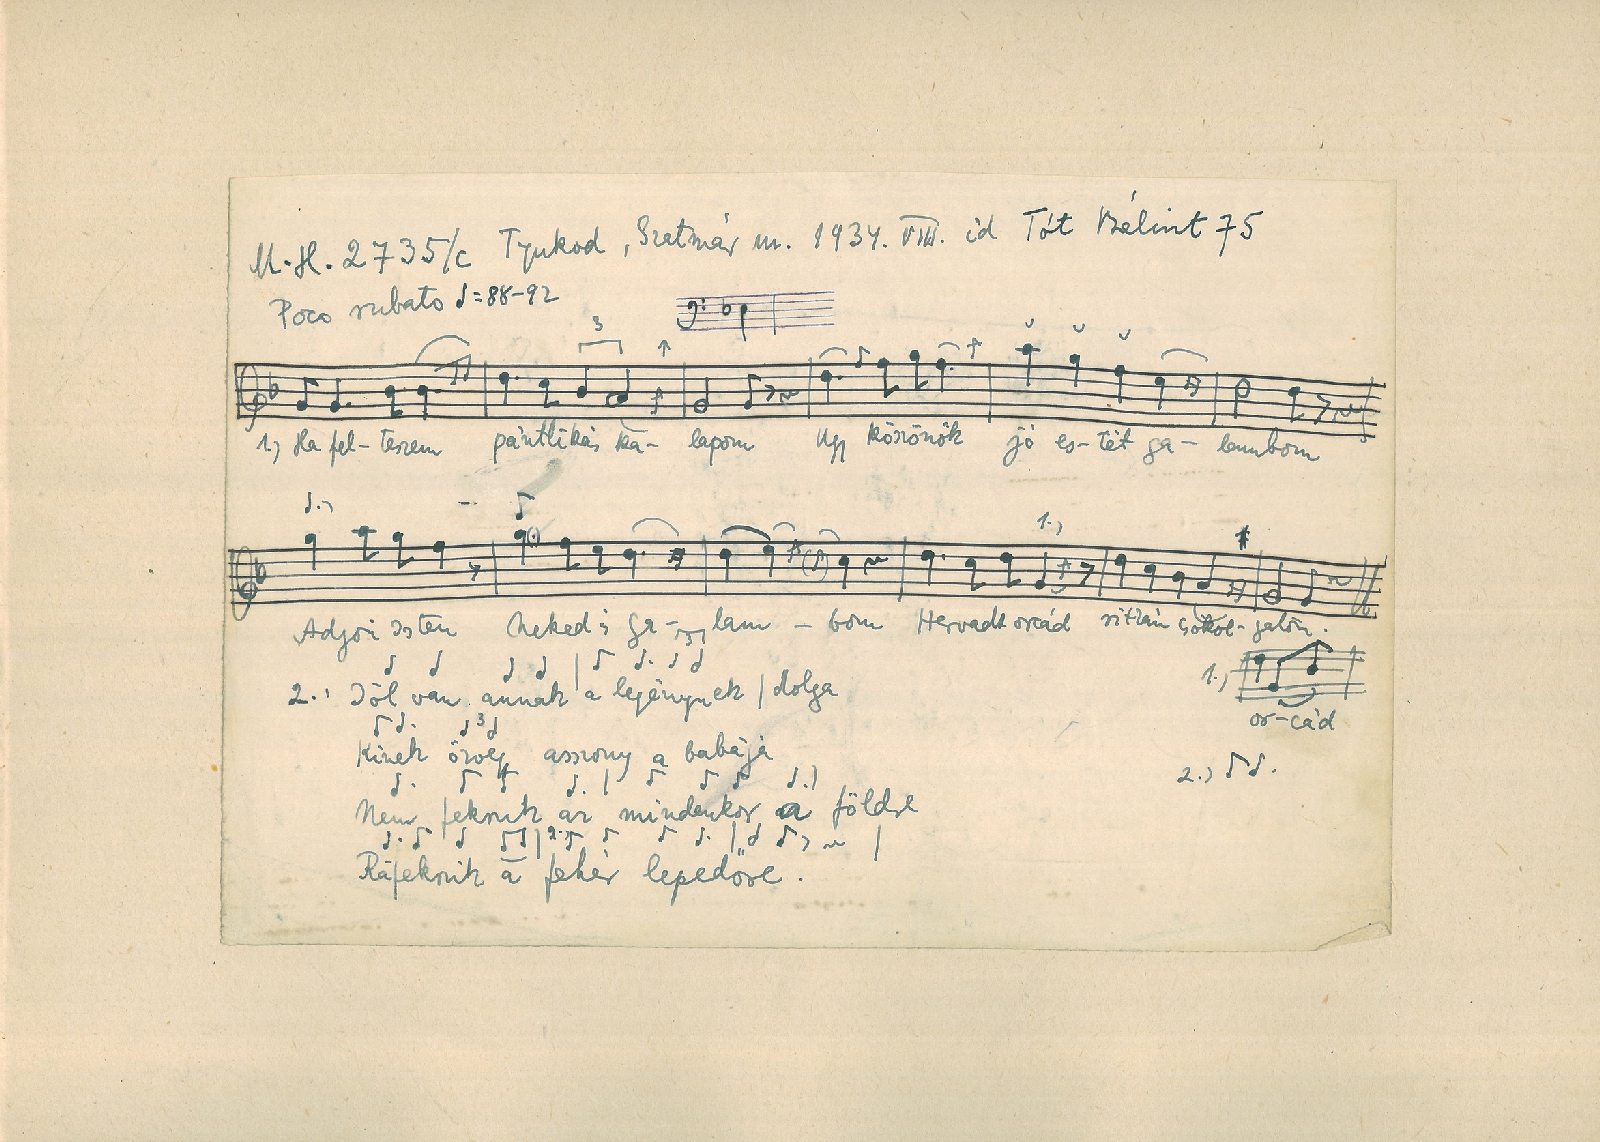 M.H. 2735/c Tyukod, Szatmár m. 1934. VIII. id Tót Bálint 75
Poco rubato ♩=88-92
3
1.) Ha fel-teszem pántlikás ka- lapom Ugy köszönök jó es-tét ga- lambom
1.)
Adjon Isten Neked is ga- lam - bom Hervadt orcád ritkán csókol- gatom.
2.) Jól van annak a legénynek | dolga
1.)
or-cád
3
Kinek öreg asszony a babája
2.)
Nem fekszik az mindenkor a földre
Ráfekszik a fehér lepedőre.